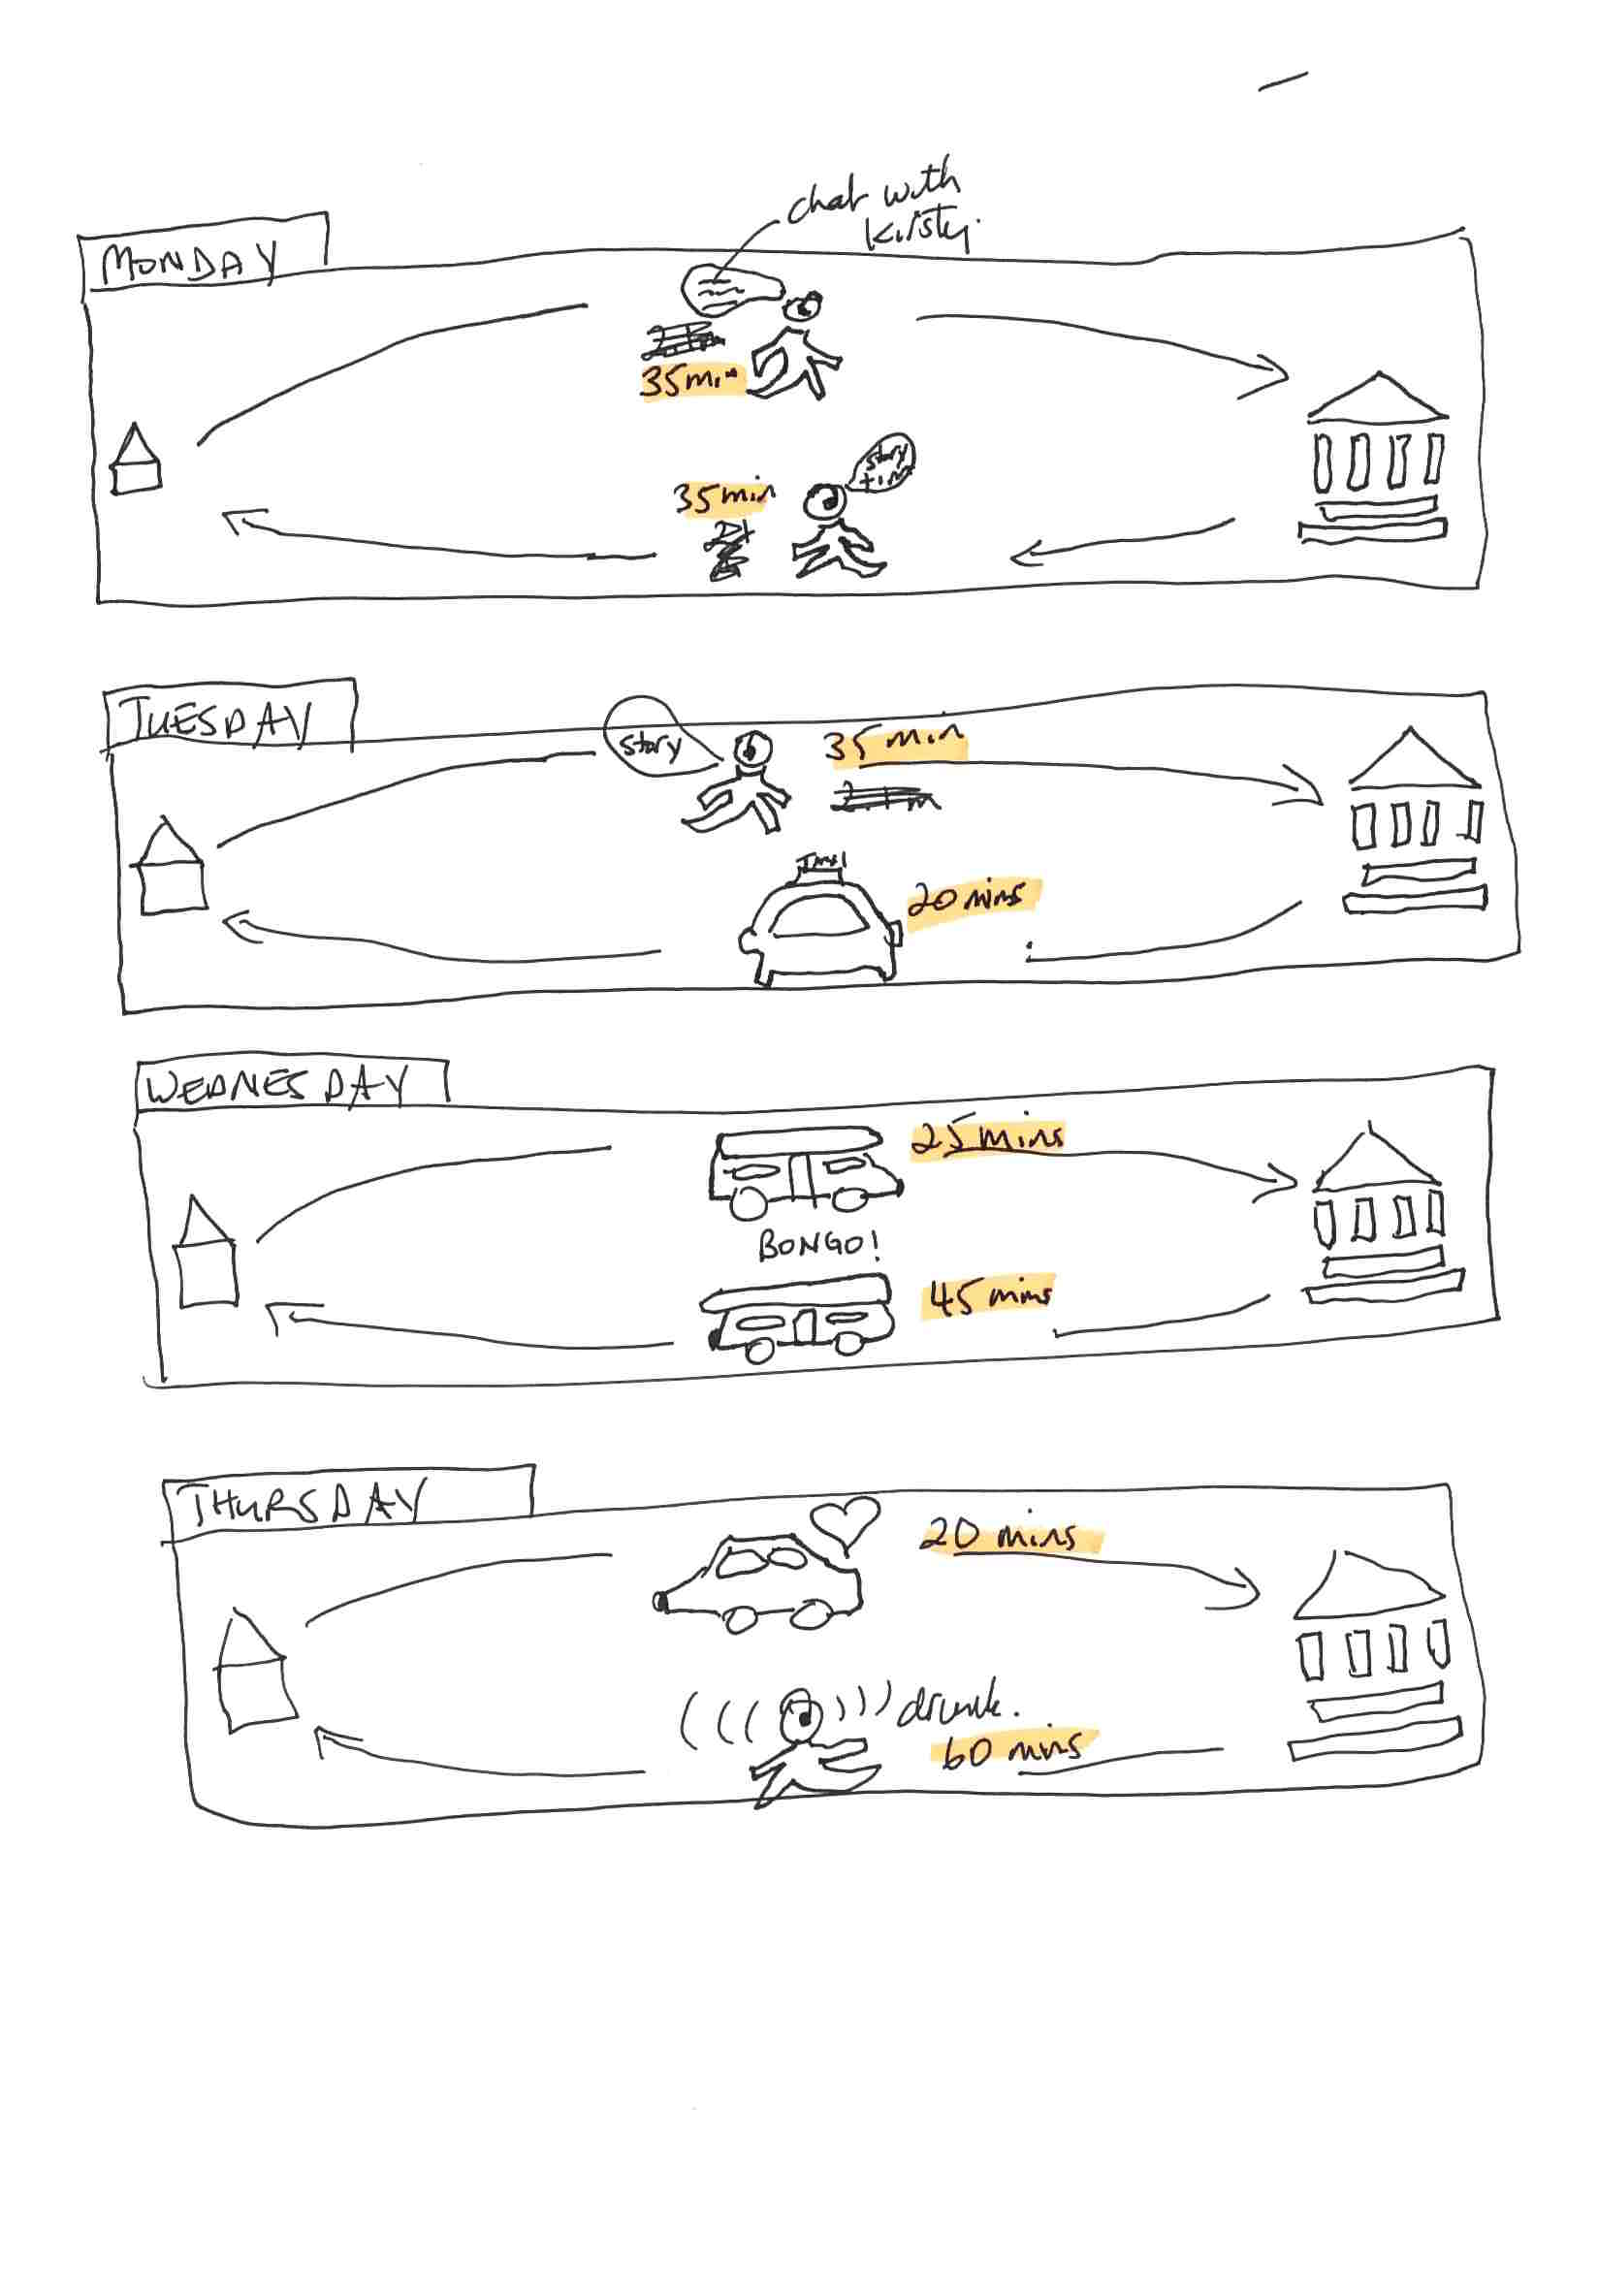 chat with
Kirsty.
MONDAY
35min
story
time
35min
TUESDAY
story
35 min
TAXI
20 mins
WEDNESDAY
25 mins
BONGO!
45 mins
THURSDAY
20 mins
drunk.
60 mins